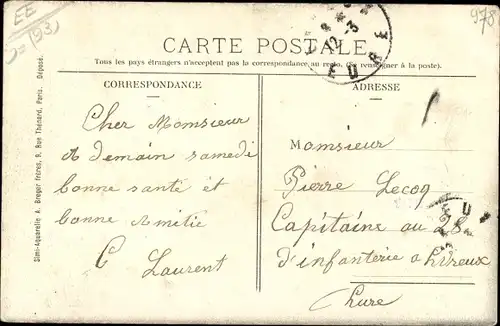 EE
(93)
978
CARTE POSTALE
Tous les pays étrangers n'acceptent pas la correspondance au recto. (Se renseigner à la poste).
CORRESPONDANCE
Cher Monsieur
A demain samedi
bonne santé et
bonne Amitie
C Laurent
ADRESSE
Monsieur
Pierre Lecoq
Capitaine au 28
d'infanterie a Evreux
Eure
Simi-Aquarelle A. Breger frères, 9, Rue Thénard, Paris. Déposé.
12 -3
EURE